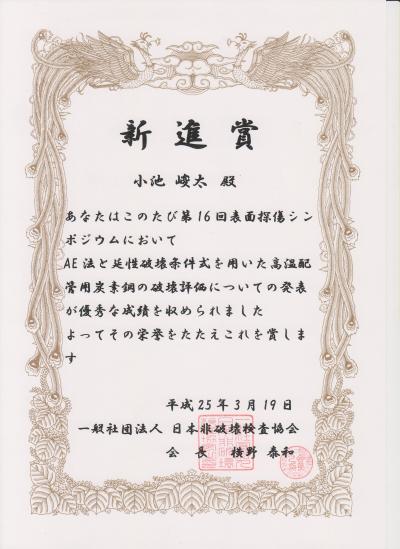 新進賞
小池 峻太 殿
あなたはこのたび第16回表面探傷シン
ポジウムにおいて
AE法と延性破壊条件式を用いた高温配
管用炭素鋼の破壊評価についての発表
が優秀な成績を収められました
よってその栄誉をたたえこれを賞しま
す
平成25年3月19日
一般社団法人 日本非破壊検査協会
会 長 横野 泰和